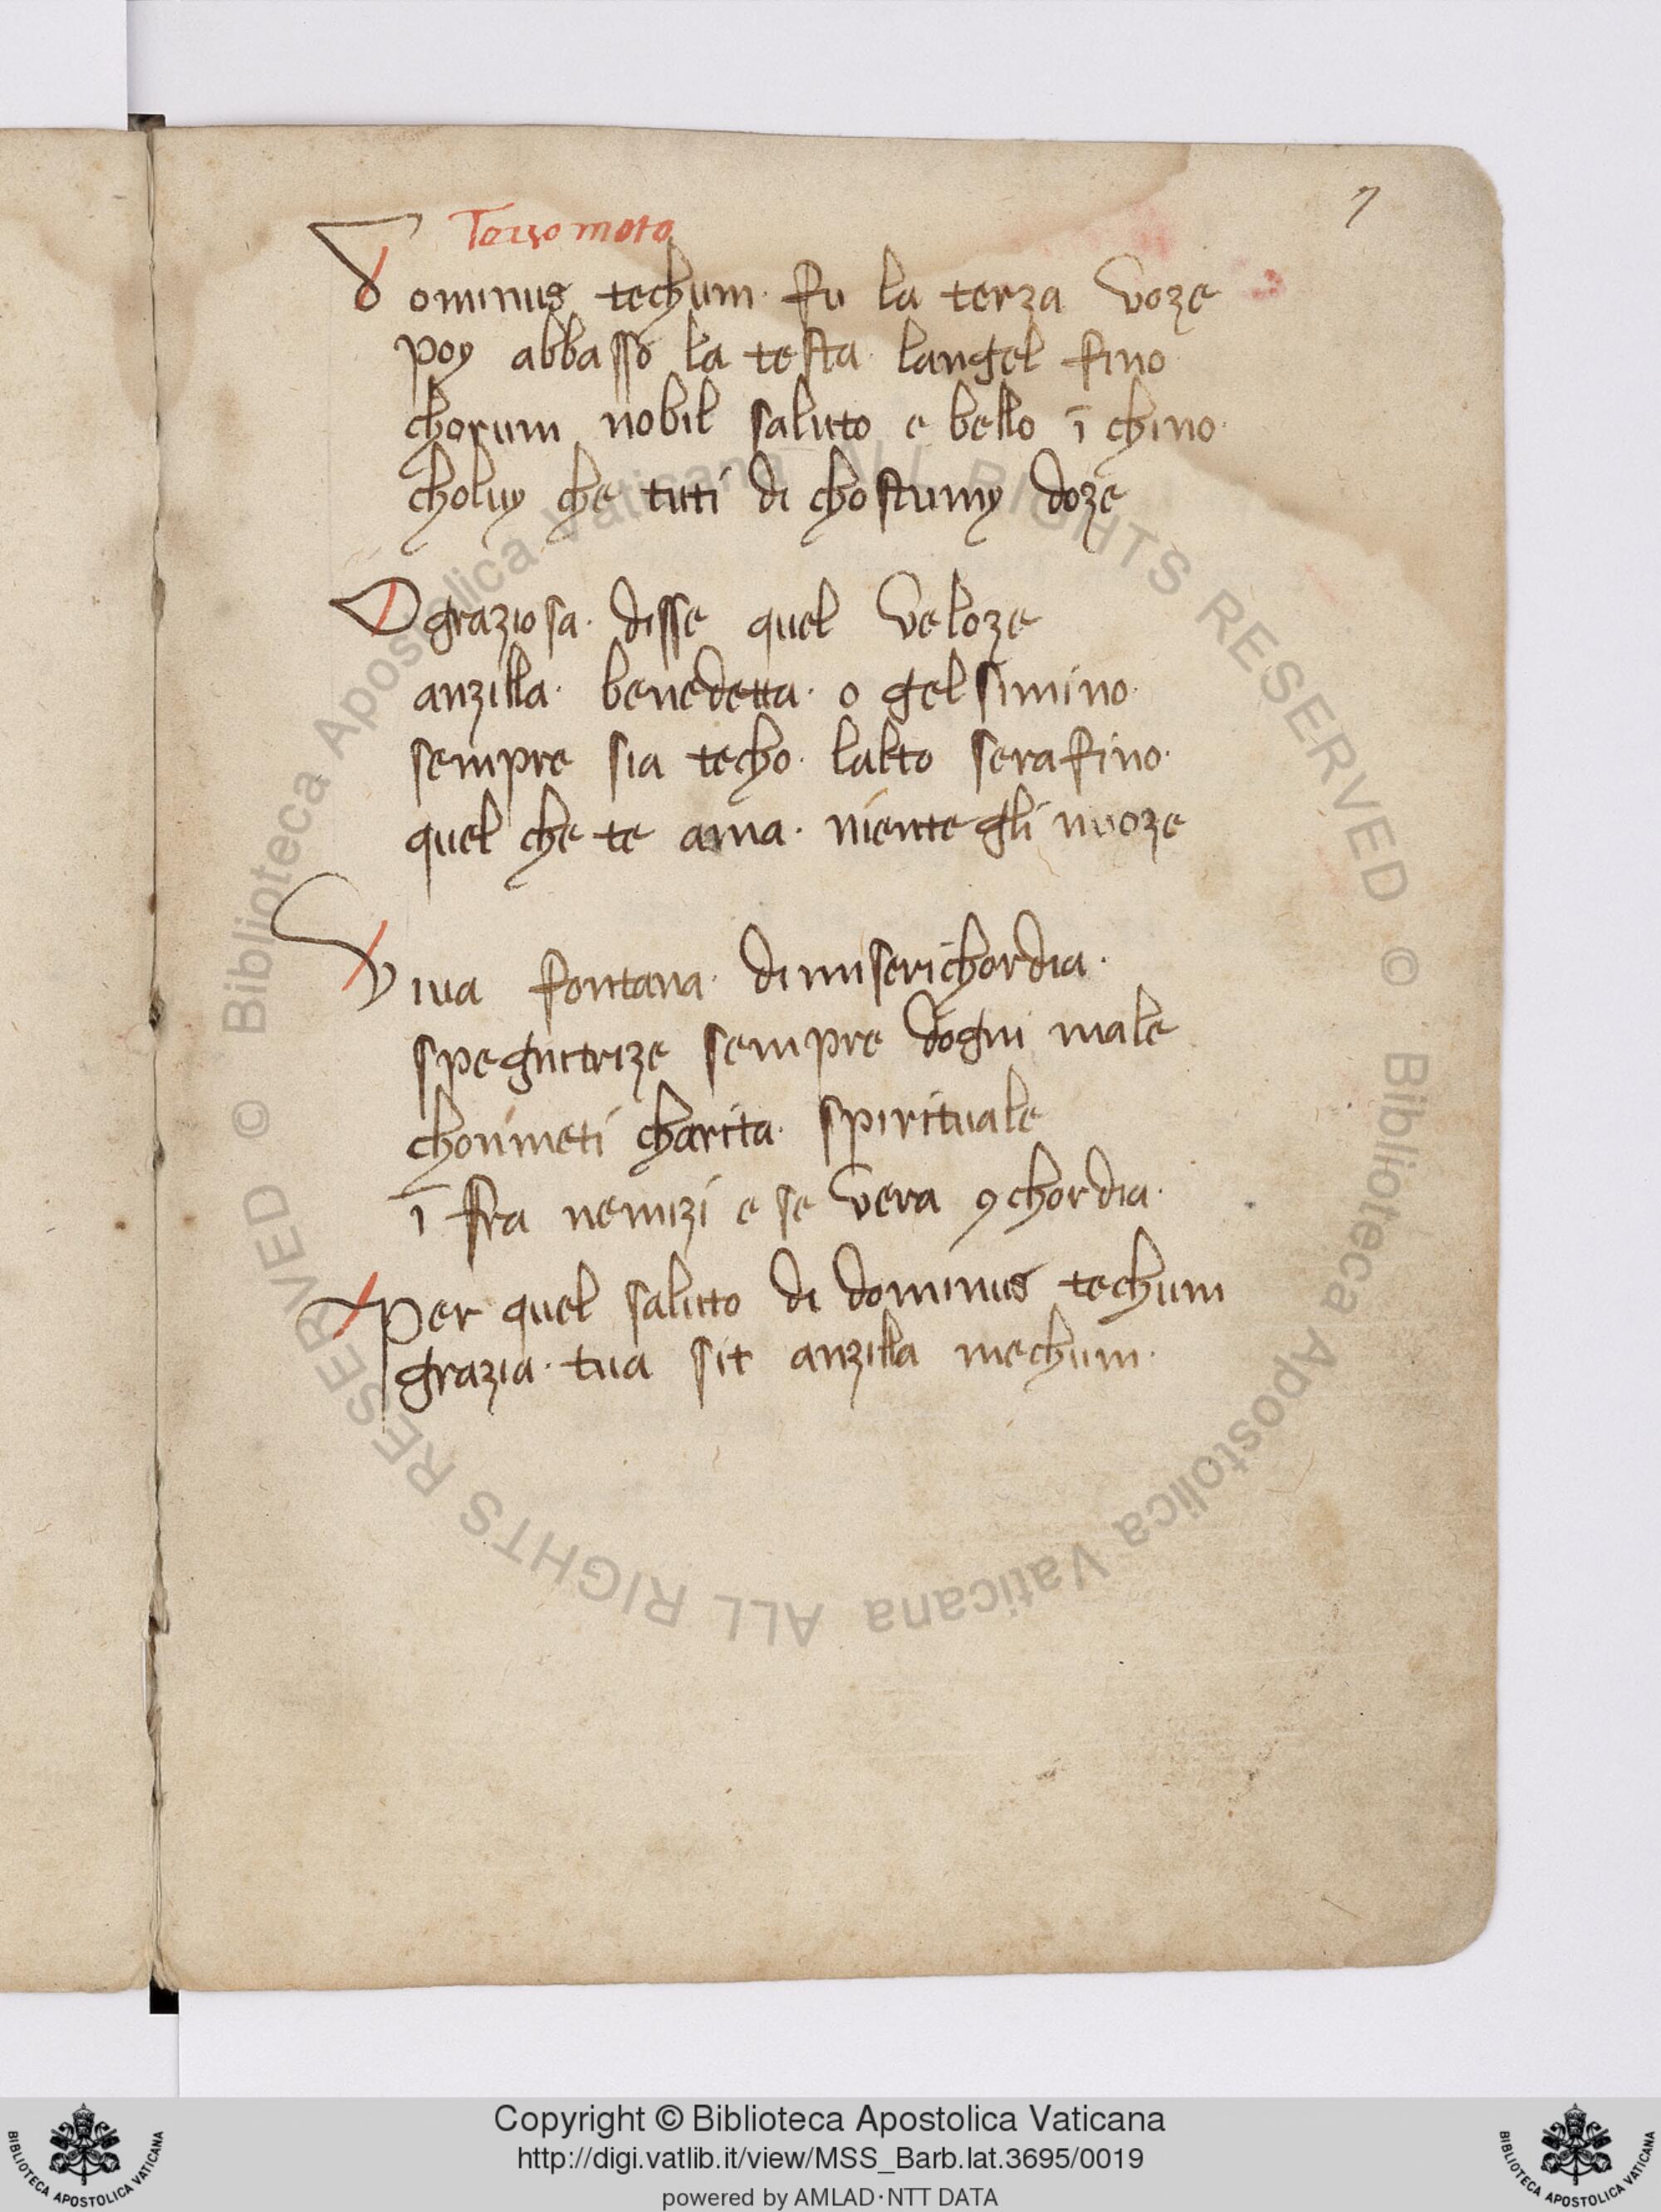 7
Terzo moto
Dominus techum· fu la terza voze
poy abbasso la testa· langel fino·
chorum nobil saluto e bello ī chino·
choluy che tuti di chostumy doze
O graziosa· disse quel veloze
anzilla· benedetta· o gelsimino·
sempre sia techo· lalto serafino·
quel che te ama· niente gli nuoze
Viua fontana· di miserichordia·
spegnitrize sempre dogni male
charita· spirituale
ī fra nemizi e se vera ꝯchordia·
Per quel saluto di dominus techum
grazia· tua sit anzilla mechum·
© Biblioteca Apostolica Vaticana ALL RIGHTS RESERVED © Biblioteca Apostolica Vaticana ALL RIGHTS RESERVED
BIBLIOTECA APOSTOLICA VATICANA
Copyright © Biblioteca Apostolica Vaticana
http://digi.vatlib.it/view/MSS_Barb.lat.3695/0019
powered by AMLAD·NTT DATA
BIBLIOTECA APOSTOLICA VATICANA